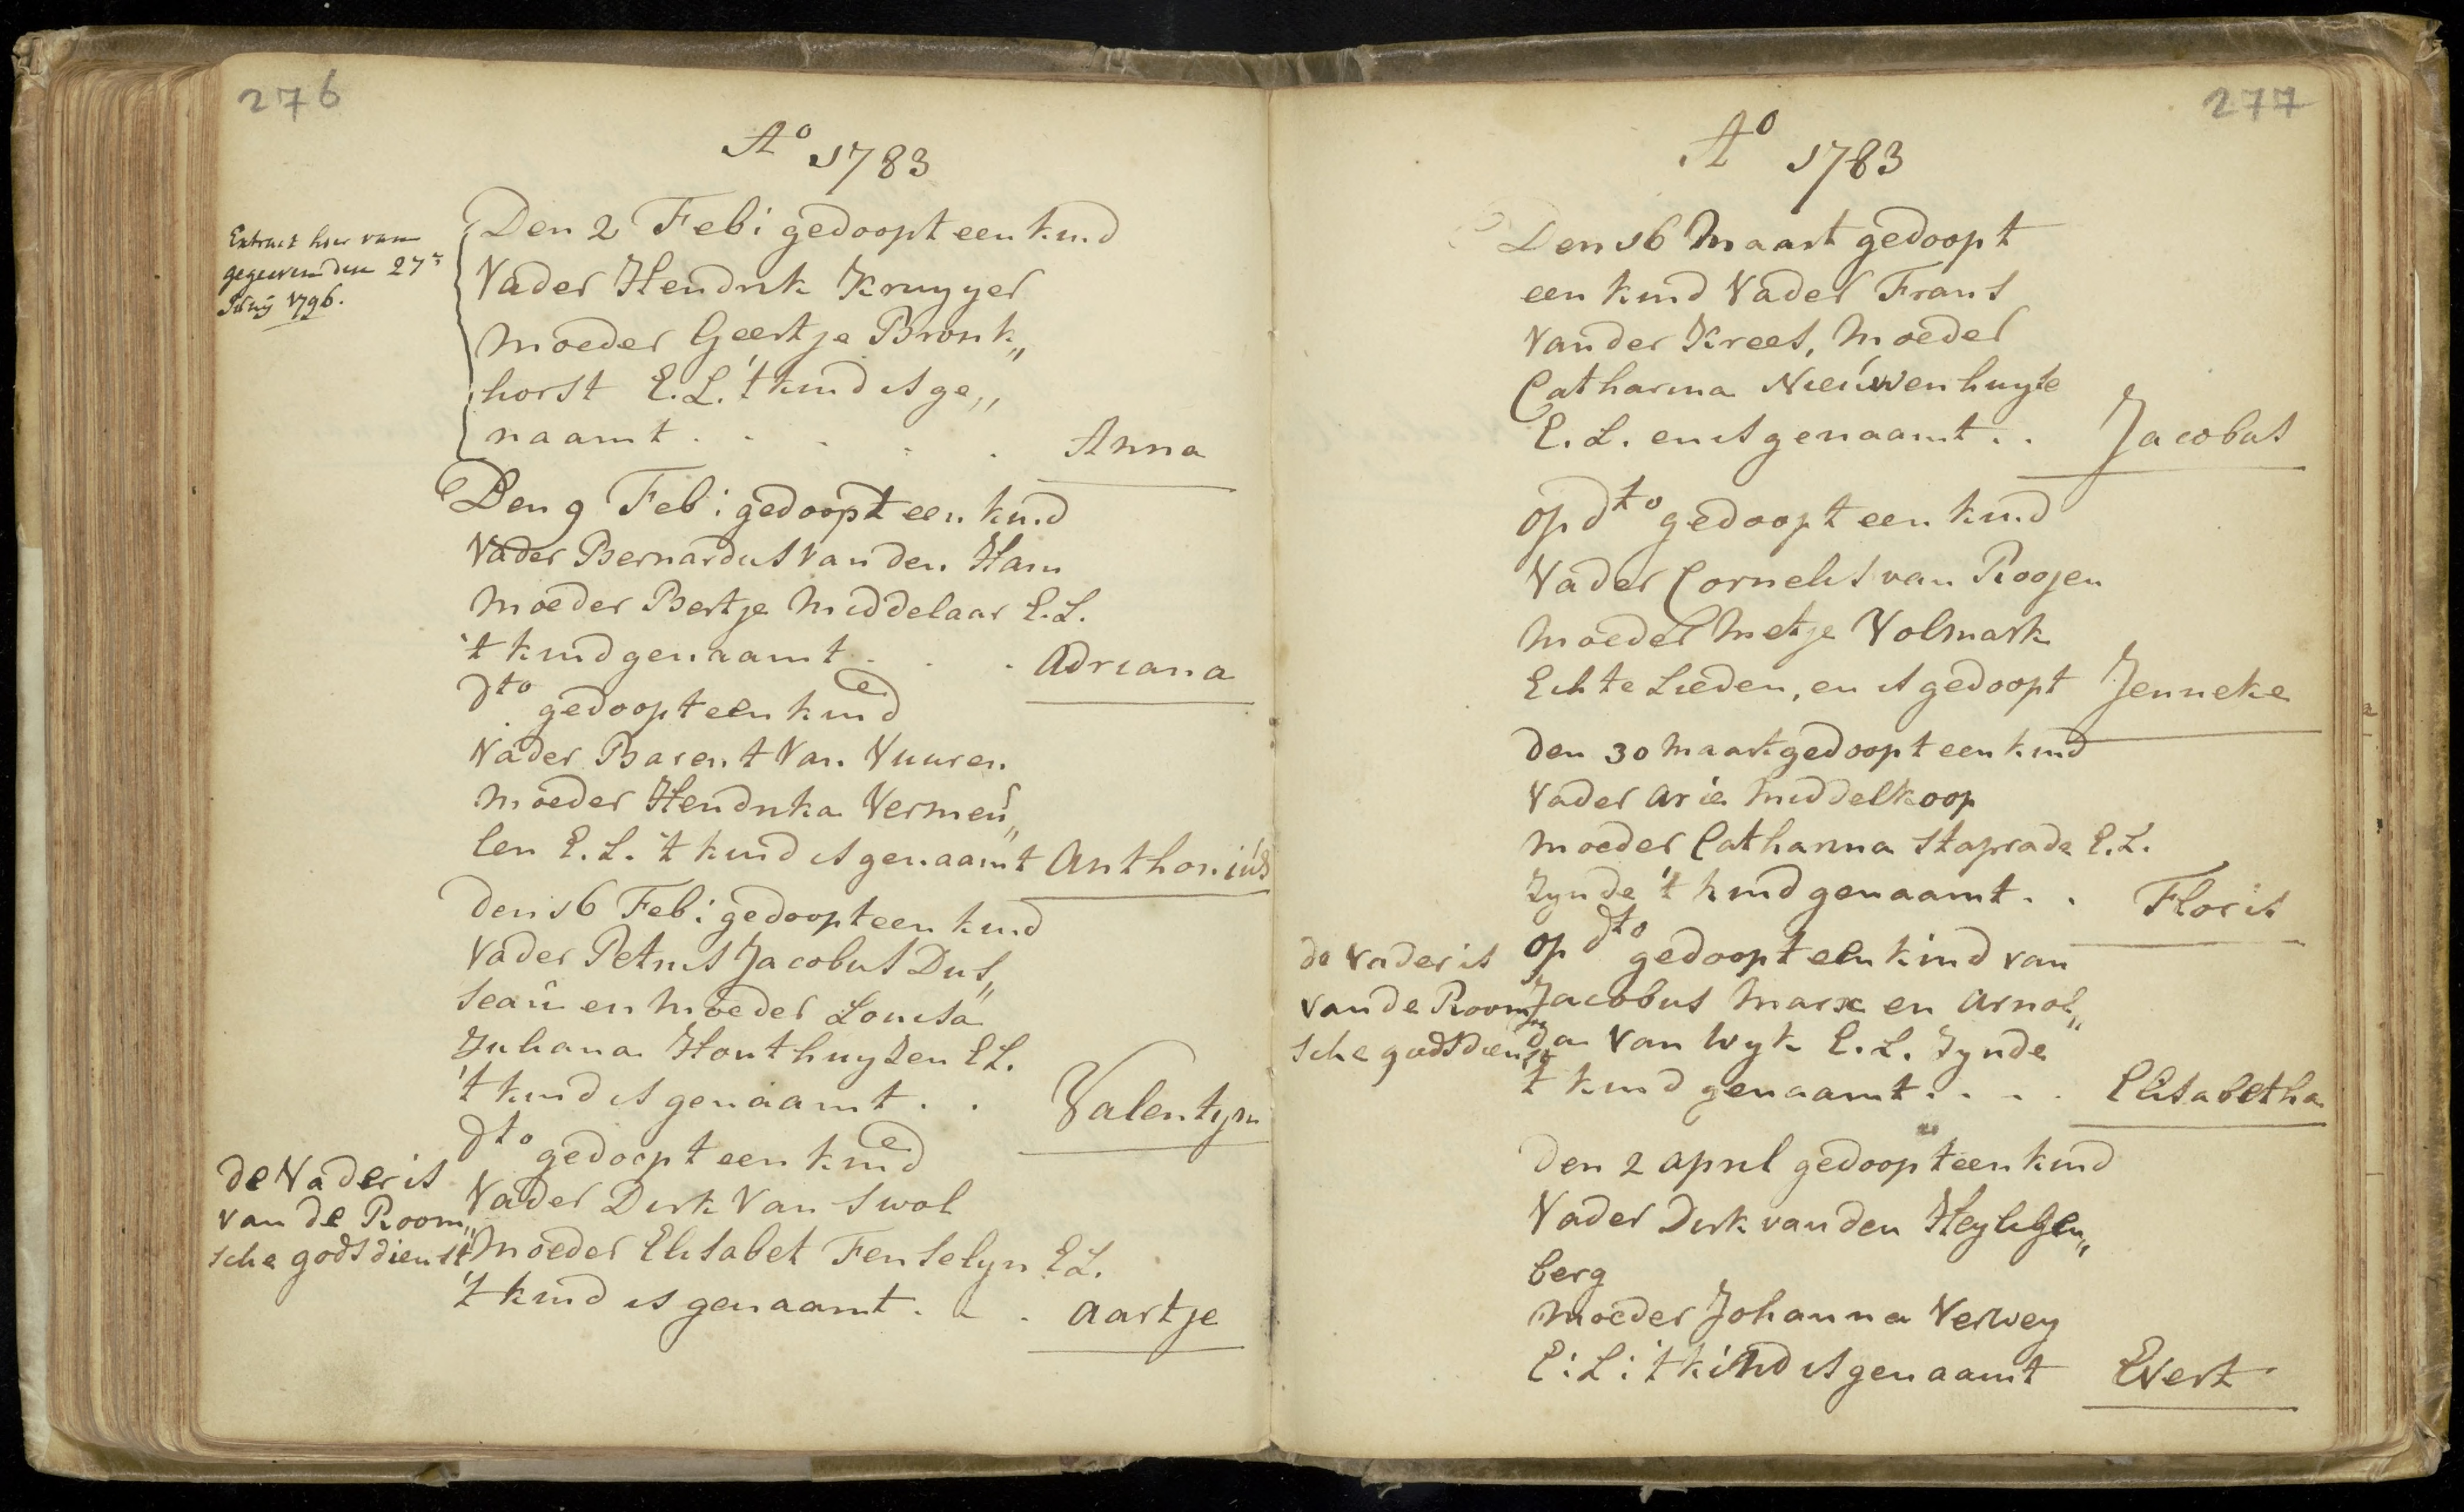 276
Ao 1783
Extract hier van
gegeeven den 27e
Juny 1796.
Den 2 Feb: gedoopt een kind
Vader Hendrik Kruyyer
Moeder Geertje Bronk,,
horst E.L. 't kind is ge,,
naamt . . . . . Anna
Den 9 Feb: gedoopt een kind
Vader Bernardus van den Ham
Moeder Bertje Middelaar E.L.
't kind genaamt . . . Adriana
dto gedoopt een kind
Vader Barent Van Vuuren
Moeder Hendrika Vermeu,,
len E.L. 't kind is genaamt Anthonius
den 16 Feb: gedoopt een kind
Vader Petrus Jacobus Dus,,
seau en Moeder Louisa
Juliana Houthuysen EL.
't kind is genaamt . . Valentyn
dto gedoopt een kind
de Vader is
van de Room,,
sche godsdienst
Vader Dirk Van Swol
Moeder Elisabet Fenselyn EL.
't kind is genaamt . . . Aartje
277
Ao 1783
Den 16 Maart gedoopt
een kind Vader Frans
Van der Krees, Moeder
Catharina Nieuwenhuyse
E.L. en is genaamt . . Jacobus
op dto gedoopt een kind
Vader Cornelis van Roojen
Moeder Metje Volmark
Echte Lieden, en is gedoopt Jenneke
den 30 Maart gedoopt een kind
Vader Arie Middelkoop
Moeder Catharina Staprade E.L.
Zynde 't kind genaamt . . Floris
de Vader is
van de Room,,
sche godsdienst
op dto gedoopt een kind van
Jacobus Marx en Arnol,,
da Van Wyk E.L. Zynde
't kind genaamt . . . . Elisabetha
den 2 April gedoopt een kind
Vader Dirk van den Heyligen,,
berg
Moeder Johanna Verwey
E:L: 't kind is genaamt Evert